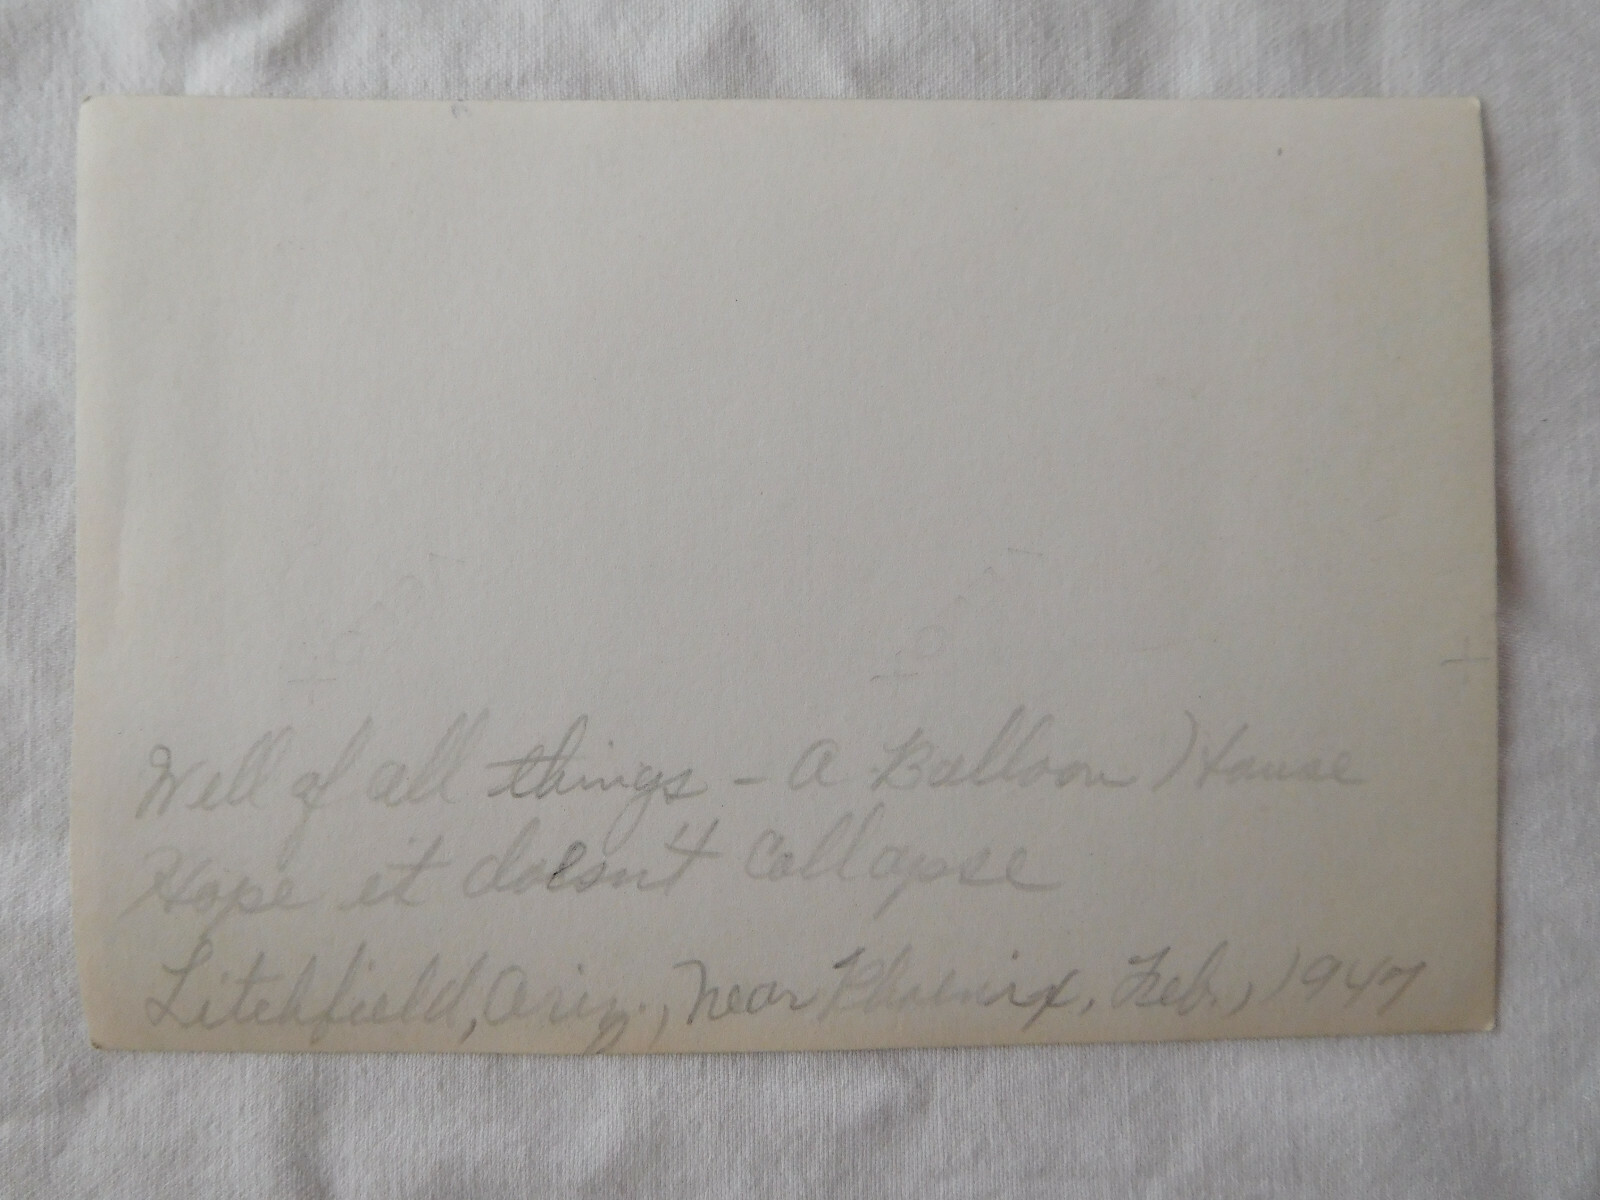 Well of all things - A Balloon House
Hope it doesn't collapse
Litchfield, Ariz., near Phoenix, Feb., 1947